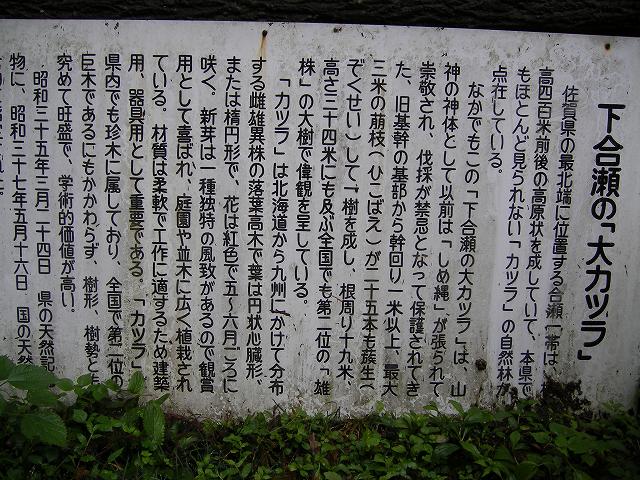 下合瀬の「大カツラ」
佐賀県の最北端に位置する合瀬一帯は、
高四百米前後の高原状を成していて、本県で
もほとんど見られない「カツラ」の自然林が
点在している。
なかでもこの「下合瀬の大カツラ」は、山
神の神体として以前は「しめ縄」が張られて
崇敬され、伐採が禁忌となって保護されてき
た、旧基幹の基部から幹回り一米以上、最大
三米の萌枝(ひこばえ)が二十五本も簇生(
ぞくせい)して一樹を成し、根周り十九米、
高さ三十四米にも及ぶ全国でも第二位の「雄
株」の大樹で偉観を呈している。
「カツラ」は北海道から九州にかけて分布
する雌雄異株の落葉高木で葉は円状心臓形、
または楕円形で、花は紅色で五〜六月ごろに
咲く、新芽は一種独特の風致があるので観賞
用として喜ばれ、庭園や並木に広く植栽され
ている。材質は柔軟で工作に適するため建築
用、器具用として重要である。「カツラ」
県内でも珍木に属しており、全国で第二位の
巨木であるにもかかわらず、樹形、樹勢とも
究めて旺盛で、学術的価値が高い。
昭和三十五年三月二十四日 県の天然記
物に、昭和三十七年五月十六日 国の天然